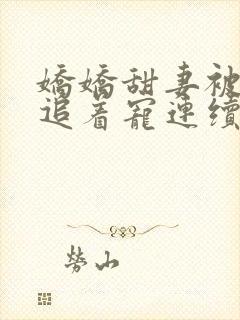 嬌嬌甜妻被
追着寵連續
勞山